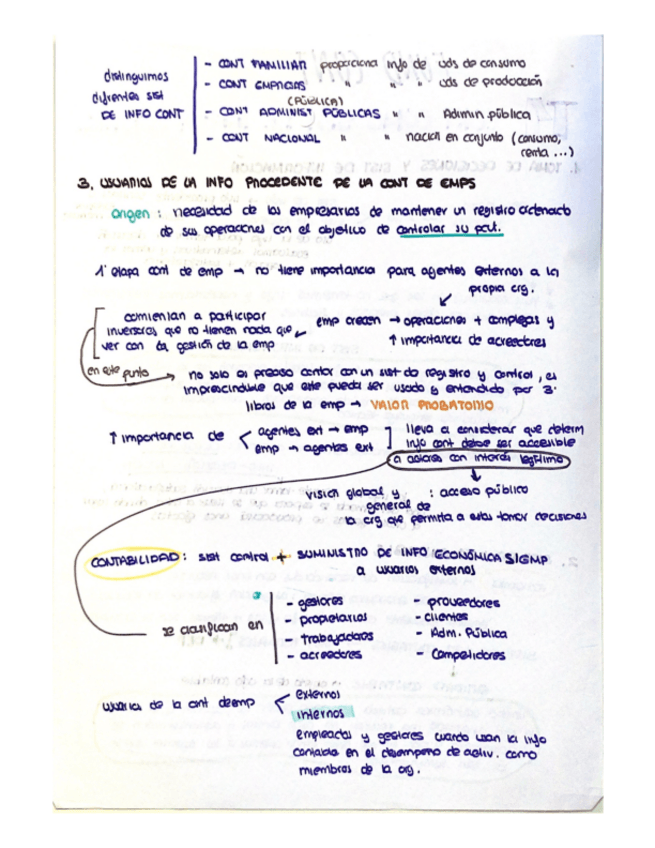 distinguimos
diferentes sist
DE INFO CONT
- CONT FAMILIAR proporciona info de uds de consumo
- CONT EMPRESAS " " " uds de producción
(PÚBLICA)
- CONT ADMINIST PÚBLICAS " " Admin. pública
- CONT NACIONAL " " nación en conjunto (consumo,
renta ...)
3. USUARIOS DE LA INFO PROCEDENTE DE LA CONT DE EMPS
origen : necesidad de los empresarios de mantener un registro ordenado
de sus operaciones con el objetivo de controlar su pat.
1ª etapa cont de emp → no tiene importancia para agentes externos a la
propia org.
comienzan a participar
inversores que no tienen nada que
ver con la gestión de la emp
emp crecen → operaciones + complejas y
↑ importancia de acreedores
en este punto → no solo es preciso contar con un sist de registro y control, es
imprescindible que este pueda ser usado y entendido por 3º
libros de la emp → VALOR PROBATORIO
↑ importancia de
agentes ext → emp
emp → agentes ext
lleva a considerar que determ
info cont debe ser accesible
a actores con interés legítimo
visión global y : acceso público
general de
la org que permita a estos tomar decisiones
CONTABILIDAD : sist control + SUMINISTRO DE INFO ECONÓMICA SIGMP
a usuarios externos
se clasifican en
- gestores
- propietarios
- trabajadores
- acreedores
- proveedores
- clientes
- Adm. Pública
- Competidores
usuarios de la cont de emp
externos
internos
empleados y gestores cuando usan la info
contable en el desempeño de activ. como
miembros de la org.